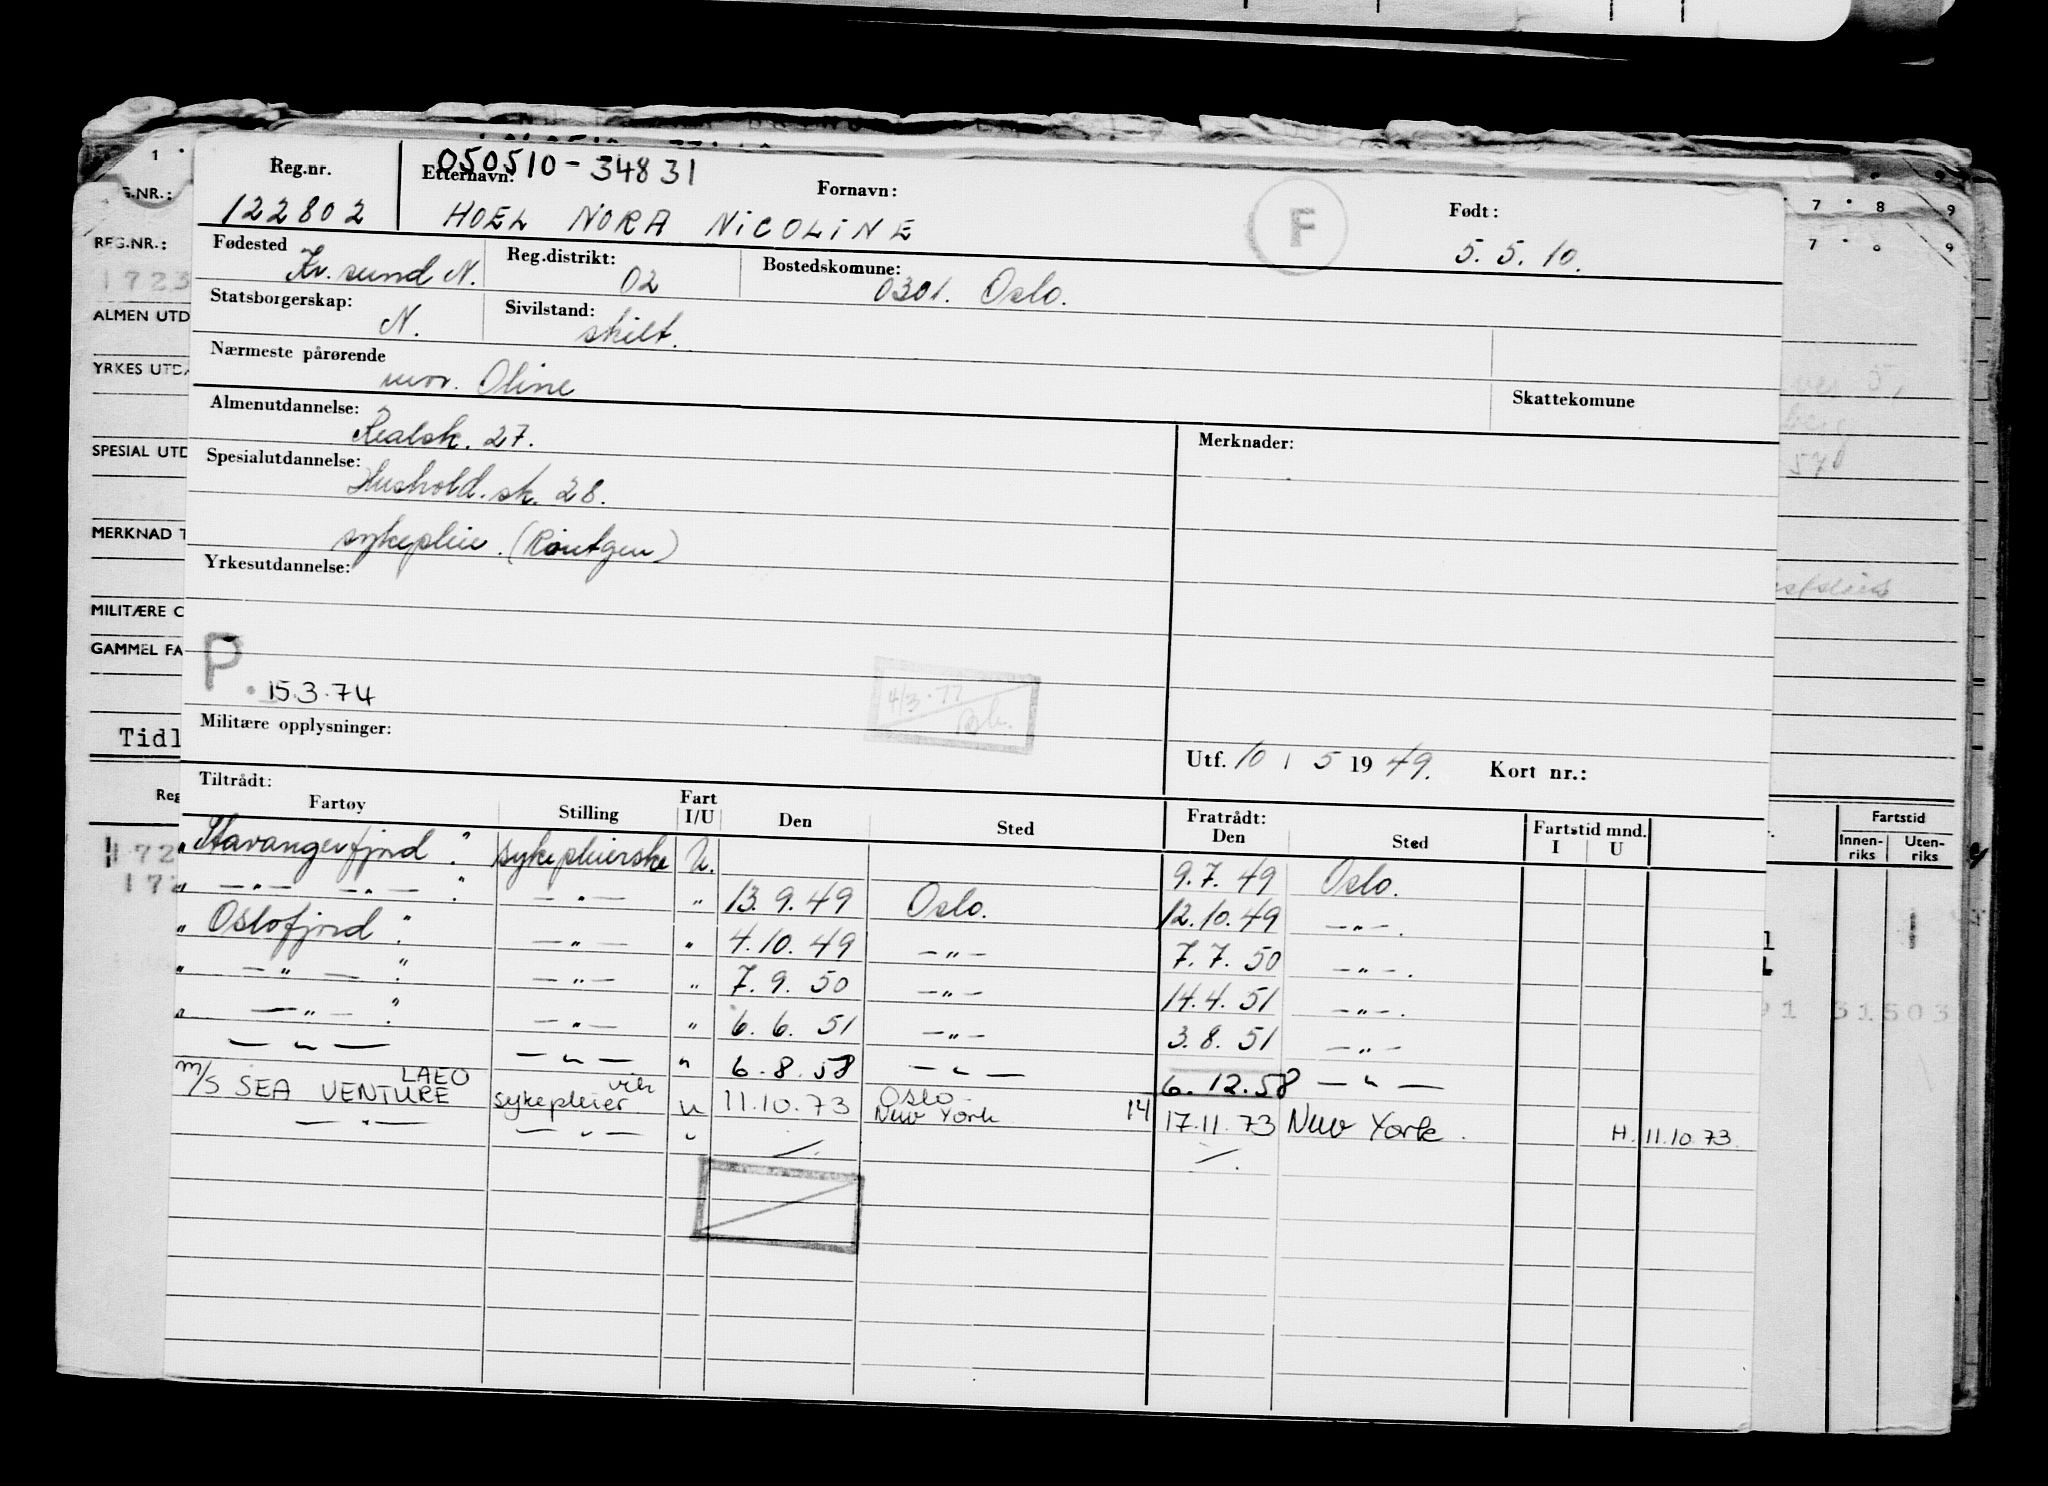 050510-34831
Reg.nr. Etternavn: Fornavn: Født:
122802 HOEL NORA NICOLINE F 5.5.10.
Fødested Reg.distrikt: Bostedskomune:
Kr.sund N. 02 0301. Oslo.
Statsborgerskap: Sivilstand:
N. skilt.
Nærmeste pårørende
mor. Oline
Skattekomune
Almenutdannelse: Merknader:
Realsk. 27.
Spesialutdannelse:
Hushold.sk. 28.
sykepleie. (Røntgen)
Yrkesutdannelse:
P. 15.3.74
4/3.77
Militære opplysninger:
Utf. 10 / 5 1949. Kort nr.:
Tiltrådt: Fratrådt:
Fartøy Stilling Fart I/U Den Sted Den Sted Fartstid mnd. I U
"Stavangerfjord" sykepleierske U. 9.7.49 Oslo.
" —"— —"— " —"— " 13.9.49 Oslo. 12.10.49 —"—.
"Oslofjord" —"— " 4.10.49 —"— 7.7.50 —"—.
" —"— " —"— " 7.9.50 —"— 14.4.51 —"—.
" —"— " —"— " 6.6.51 —"— 3.8.51 —"—
—"— —"— " 6.8.58 —"— 6.12.58 —"—
LAEO vik Oslo
m/s SEA VENTURE sykepleier U 11.10.73 New York 14 17.11.73 New York. H. 11.10.73.
—"— —"— " /. /.
REG.NR.:
ALMEN UTD
YRKES UTDA
SPESIAL UTD
MERKNAD T
MILITÆRE O
GAMMEL FA
Tidl
Reg
Fartstid
Innen-riks Uten-riks
31503